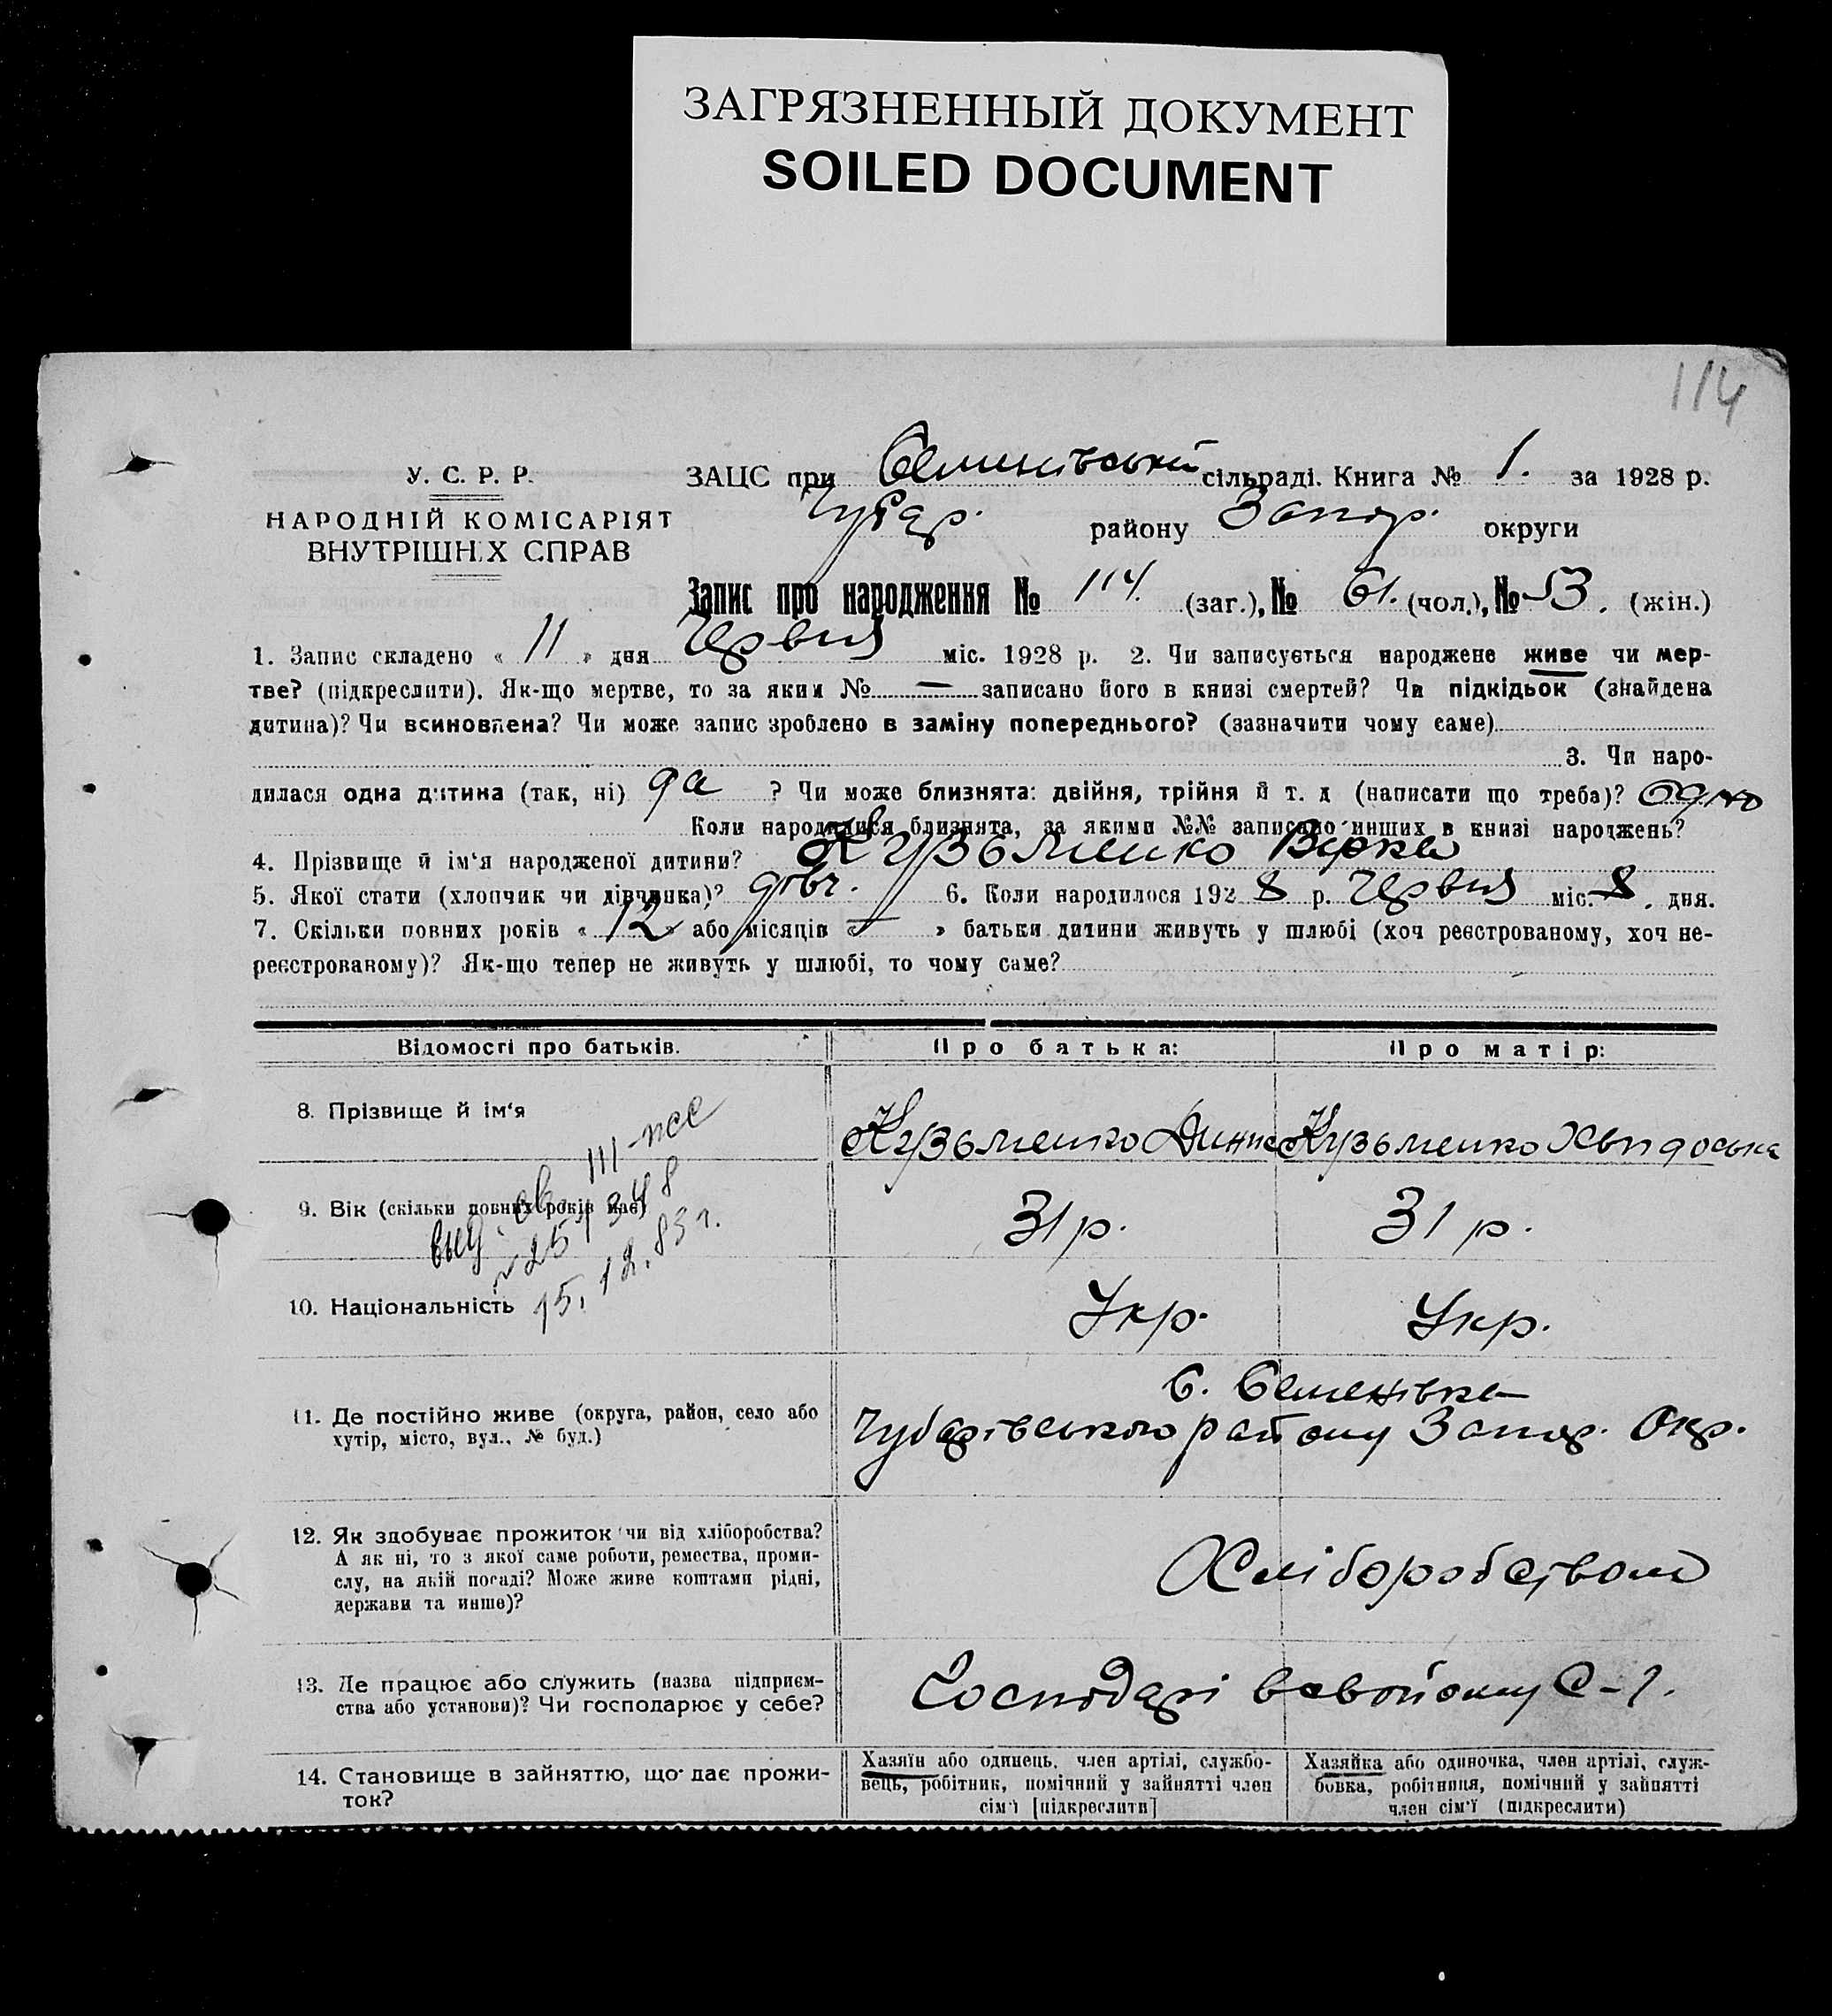 ЗАГРЯЗНЕННЫЙ ДОКУМЕНТ
SOILED DOCUMENT
114
У. С. Р. Р.
НАРОДНІЙ КОМІСАРІЯТ
ВНУТРІШНІХ СПРАВ
ЗАЦС при Семенівській сільраді. Книга № 1. за 1928 р.
Чубар. району Запор. округи
Запис про народження № 114. (заг.), № 61. (чол.), № 53. (жін.)
1. Запис складено « 11 » дня Червня міс. 1928 р. 2. Чи записується народжене живе чи мер-
тве? (підкреслити). Як-що мертве, то за яким № — записано його в книзі смертей? Чи підкідьок (знайдена
дитина)? Чи всиновлена? Чи може запис зроблено в заміну попереднього? (зазначити чому саме)
3. Чи наро-
дилася одна дитина (так, ні) да ? Чи може близнята: двійня, трійня й т. д (написати що треба)? Одно
Коли народилися близнята, за якими №№ записано инших в книзі народжень?
4. Прізвище й ім‘я народженої дитини? Кузьменко Вірка
5. Якої стати (хлопчик чи дівчинка)? дівч. 6. Коли народилося 192 8 р. Червня міс. 8. дня.
7. Скільки повних років « 12 » або місяців « — » батьки дитини живуть у шлюбі (хоч реєстрованому, хоч не-
реєстрованому)? Як-що тепер не живуть у шлюбі, то чому саме?
Відомості про батьків. Про батька: Про матір:
8. Прізвище й ім‘я Кузьменко Кузьменко Хвидоська
9. Вік (скільки повних років має) 31 р. 31 р.
выд. св. III-ПСС
№ 251348
15.12.83 г.
10. Національність Укр. Укр.
11. Де постійно живе (округа, район, село або
хутір, місто, вул., № буд.)
С. Семенівка
Чубарівського району Запор. Окр.
12. Як здобуває прожиток чи від хліборобства?
А як ні, то з якої саме роботи, ремества, проми-
слу, на якій посаді? Може живе коштами рідні,
держави та инше)?
Хліборобством
13. Де працює або служить (назва підприєм-
ства або установи)? Чи господарює у себе?
Господарі в свойому С-г.
14. Становище в зайняттю, що дає прожи-
ток?
Хазяїн або одинець, член артілі, службо-
вець, робітник, помічний у зайнятті член
сім‘ї [підкреслити]
Хазяйка або одиночка, член артілі, служ-
бовка, робітниця, помічний у зайнятті
член сім‘ї (підкреслити)